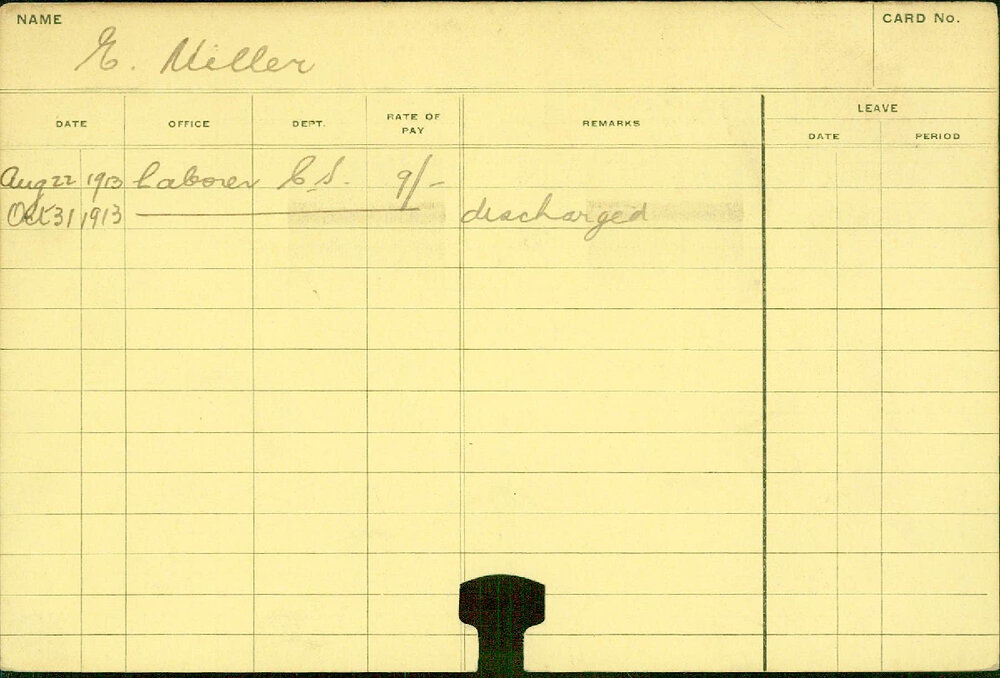 NAME
CARD No.
E. Miller
DATE OFFICE DEPT. RATE OF PAY REMARKS LEAVE
DATE PERIOD
Aug 22 1913 Laborer C.S. 9/-
Oct 31 1913 discharged